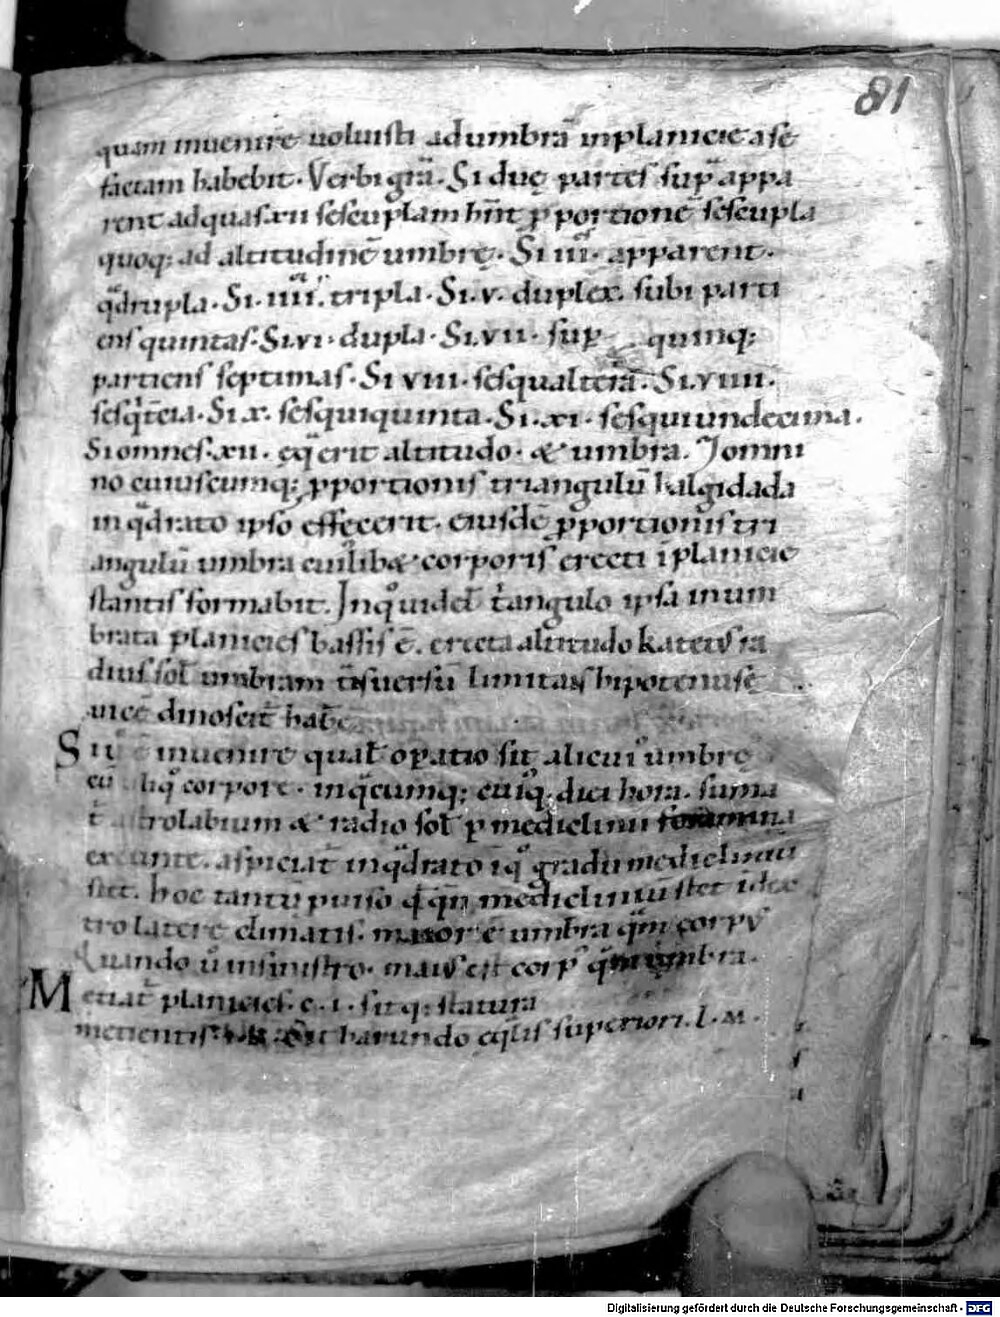 81
quam inuenire uoluisti adumbrā inplanicie a se
factam habebit. Verbi grā. Si duę partes sup̄ appa
rent ad quas .xii sescuplam hn̄t ꝓportionē sescupla
quoq; ad altitudinē umbrę. Si .iii. apparent.
qͣdrupla. Si .iiii. tripla. Si .v. duplex. subi parti
ens quintas. Si .vi. dupla. Si .vii. sup quinq;
partiens septimas. Si viii. sesqualtera. Si .viiii.
sesqͥtcia. Si .x. sesquiquinta. Si .xi. sesquiundecima.
Si omnes .xii. ęqͣ erit altitudo. & umbra. In omni
no cuiuscumq; ꝓportionis triangulū halgidada
in qͣdrato ipso effecerit. eiusdē ꝓportionis tri
angulū umbra cuiꝰlib& corporis erecti ī planicie
stantis formabit. In quidē tͥangulo ipsa inum
brata planicies bassis ē. erecta altitudo kateꝰ ra
dius sol umbram trͣsuersū limitans hipotenusę
uicē dinoscit̄ habe
Si inuenire qualꝰ oꝑatio sit alicuiꝰ umbrę
cū corpore. inqͣcumq; cuiꝰq; diei hora. suma
t̄ astrolabium & radio sol ꝑ mediclinii foramina
exeunte. aspiciat̄ inqͣdrato ī qͦ gradu mediclinium
stet. hoc tantū
tro latere climatis. maior ē umbra qͣm corpꝰ
Quando ū insinistro. maius est corpꝰ qͣm umbra.
Metiat̄ planicies. c. i. sitq; statura
metientis harundo eqͣlis superiori. l. m.
Digitalisierung gefördert durch die Deutsche Forschungsgemeinschaft - DFG